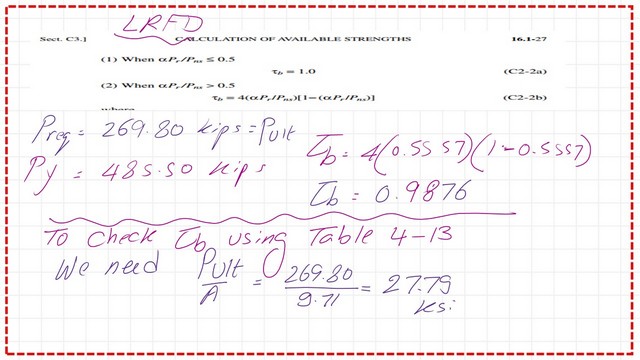 LRFD
Sect. C3.] CALCULATION OF AVAILABLE STRENGTHS 16.1-27
(1) When αPr/Pns ≤ 0.5
τb = 1.0 (C2-2a)
(2) When αPr/Pns > 0.5
τb = 4(αPr/Pns)[1−(αPr/Pns)] (C2-2b)
where
Preq = 269.80 kips = Pult
τb = 4(0.5557)(1-0.5557)
Py = 485.50 kips
τb = 0.9876
To check τb using Table 4-13
We need Pult/A = 269.80/9.71 = 27.79 ksi